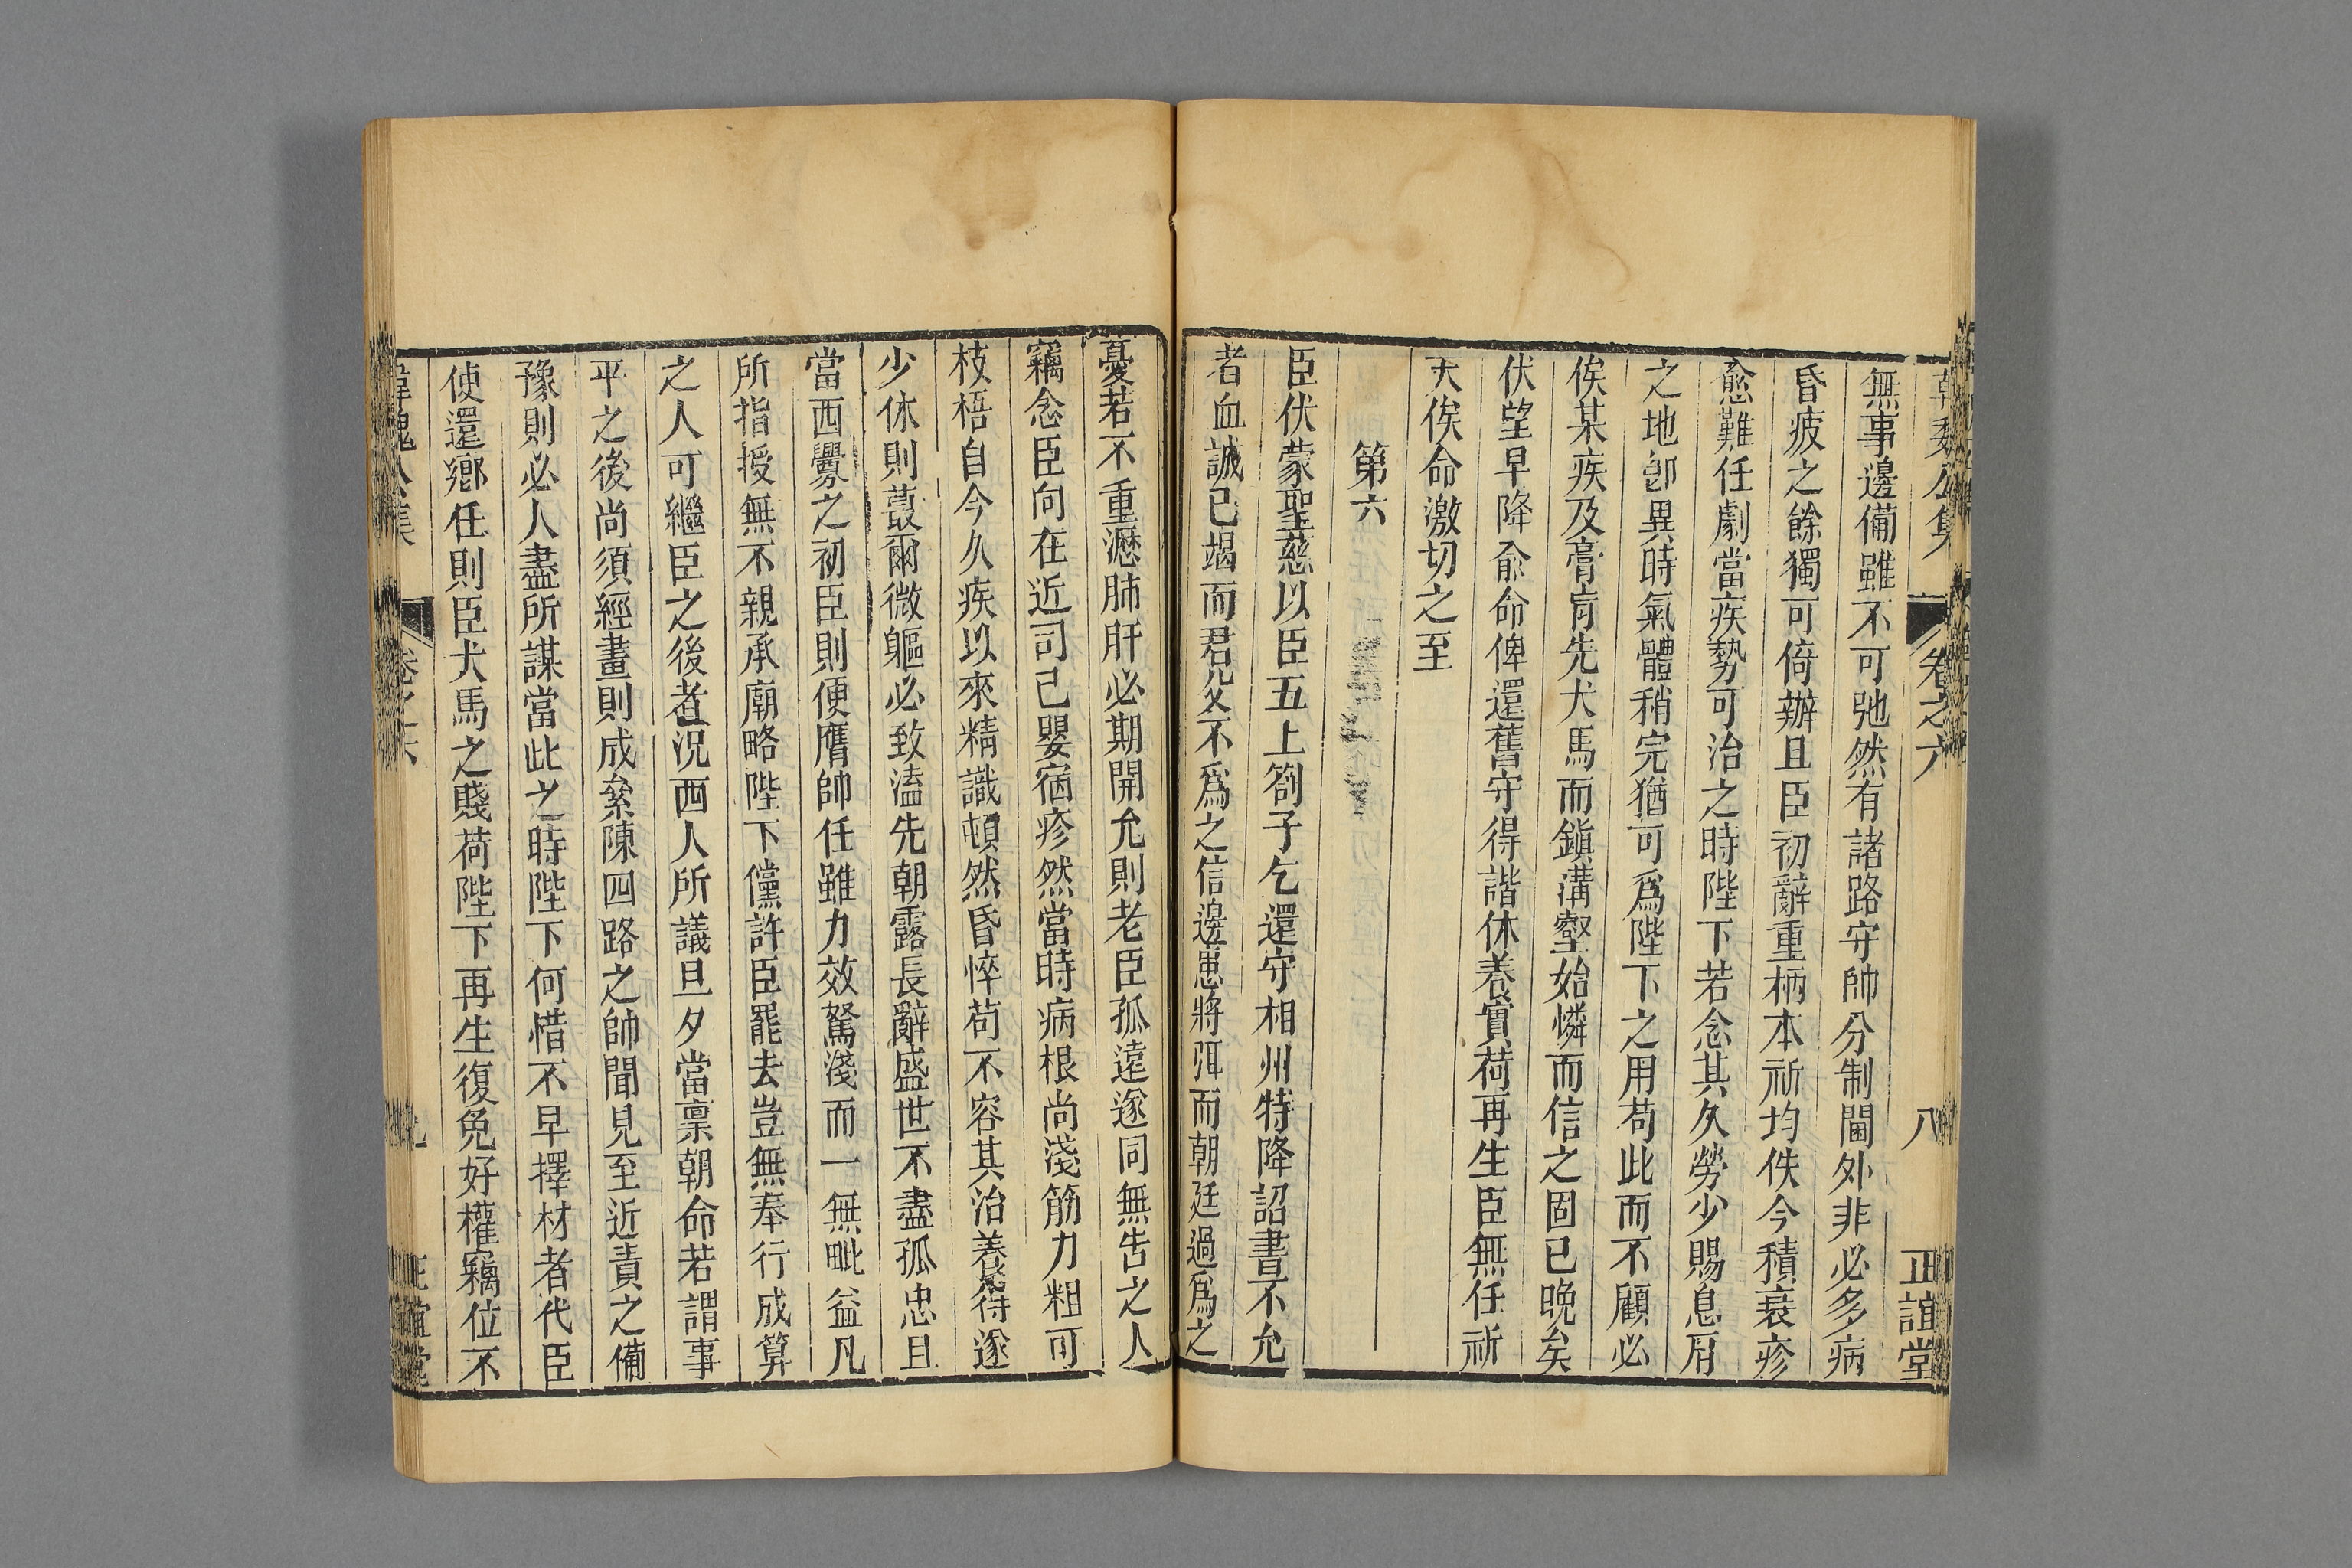 韓魏公集 卷之六 八 正誼堂
無事邊備雖不可弛然有諸路守帥分制閫外非必多病
昏疲之餘獨可倚辦且臣初辭重柄本祈均佚今積衰疹
愈難任劇當疾勢可治之時陛下若念其久勞少賜息肩
之地卽異時氣體稍完猶可爲陛下之用苟此而不顧必
俟某疾及膏肓先犬馬而鎭溝壑始憐而信之固已晚矣
伏望早降兪命俾還舊守得諧休養實荷再生臣無任祈
天俟命激切之至
第六
臣伏蒙聖慈以臣五上劄子乞還守相州特降詔書不允
者血誠已竭而君父不爲之信邊患將弭而朝廷過爲之
憂若不重瀝肺肝必期開允則老臣孤遠遂同無告之人
竊念臣向在近司已嬰宿疹然當時病根尚淺筋力粗可
枝梧自今久疾以來精識頓然昏悴苟不容其治養待遂
少休則蕞爾微軀必致溘先朝露長辭盛世不盡孤忠且
當西釁之初臣則便膺帥任雖力效駑淺而一無毗益凡
所指授無不親承廟略陛下儻許臣罷去豈無奉行成算
之人可繼臣之後者况西人所議旦夕當禀朝命若謂事
平之後尚須經畫則成籹陳四路之帥聞見至近責之備
豫則必人盡所謀當此之時陛下何惜不早擇材者代臣
使還鄉任則臣犬馬之賤荷陛下再生復免好權竊位不
韓魏公集 卷之六 九 正誼堂